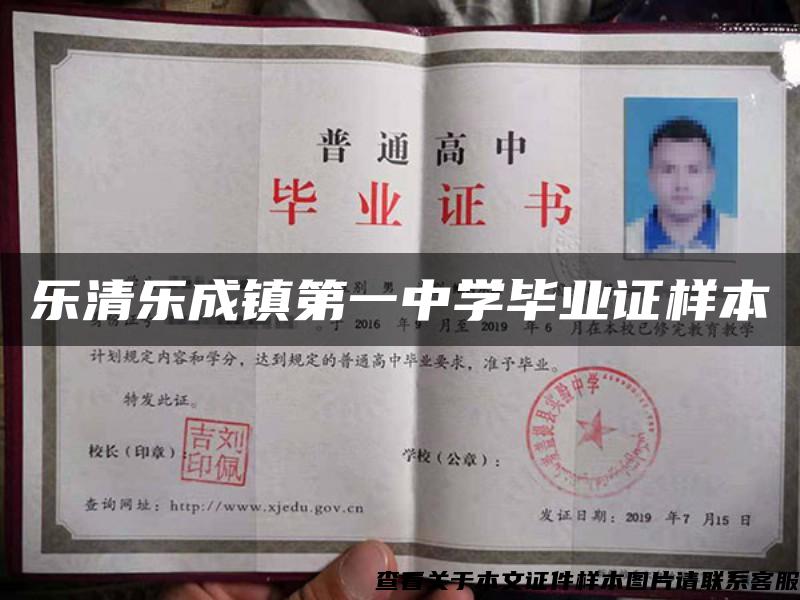 普通高中
毕业证书
乐清乐成镇第一中学毕业证样本
于 2016 年 9 月至 2019 年 6 月在本校已修完教育教学
计划规定内容和学分，达到规定的普通高中毕业要求，准予毕业。
特发此证。
校长（印章）：
刘佩吉印
学校（公章）：
实验中学
查询网址：http://www.xjedu.gov.cn
发证日期：2019 年 7 月 15 日
查看关于本文证件样本图片请联系客服